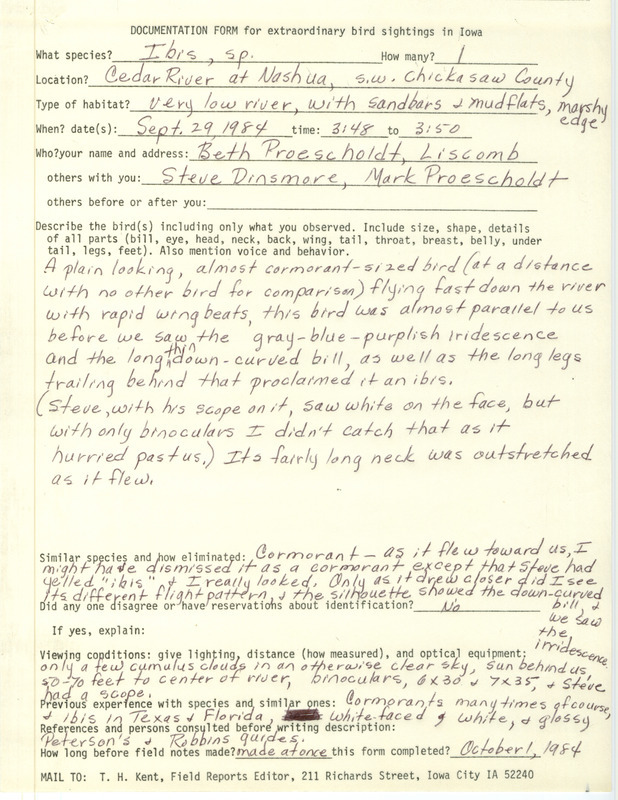 DOCUMENTATION FORM for extraordinary bird sightings in Iowa
What species? Ibis, sp. How many? 1
Location? Cedar River at Nashua, s.w. Chickasaw County
Type of habitat? very low river, with sandbars & mudflats, marshy edge
When? date(s): Sept. 29, 1984 time: 3:48 to 3:50
Who?your name and address: Beth Proescholdt, Liscomb
others with you: Steve Dinsmore, Mark Proescholdt
others before or after you:
Describe the bird(s) including only what you observed. Include size, shape, details
of all parts (bill, eye, head, neck, back, wing, tail, throat, breast, belly, under
tail, legs, feet). Also mention voice and behavior.
A plain looking, almost cormorant-sized bird (at a distance
with no other bird for comparison) flying fast down the river
with rapid wingbeats, this bird was almost parallel to us
before we saw the gray-blue-purplish iridescence
and the long thin down-curved bill, as well as the long legs
trailing behind that proclaimed it an ibis.
(Steve, with his scope on it, saw white on the face, but
with only binoculars I didn't catch that as it
hurried past us.) Its fairly long neck was outstretched
as it flew.
Similar species and how eliminated: Cormorant - as it flew toward us, I
might have dismissed it as a cormorant except that Steve had
yelled "ibis" & I really looked. Only as it drew closer did I see
its different flight pattern, & the silhouette showed the down-curved
bill, & we saw the iridescence.
Did any one disagree or have reservations about identification? No
If yes, explain:
Viewing conditions: give lighting, distance (how measured), and optical equipment:
only a few cumulus clouds in an otherwise clear sky, sun behind us,
50-70 feet to center of river, binoculars, 6X30 & 7X35, & Steve
had a scope.
Previous experience with species and similar ones: Cormorants many times of course,
& ibis in Texas & Florida, white-faced & white, & glossy
References and persons consulted before writing description:
Peterson's & Robbins guides.
How long before field notes made? made at once this form completed? October 1, 1984
MAIL TO: T. H. Kent, Field Reports Editor, 211 Richards Street, Iowa City IA 52240